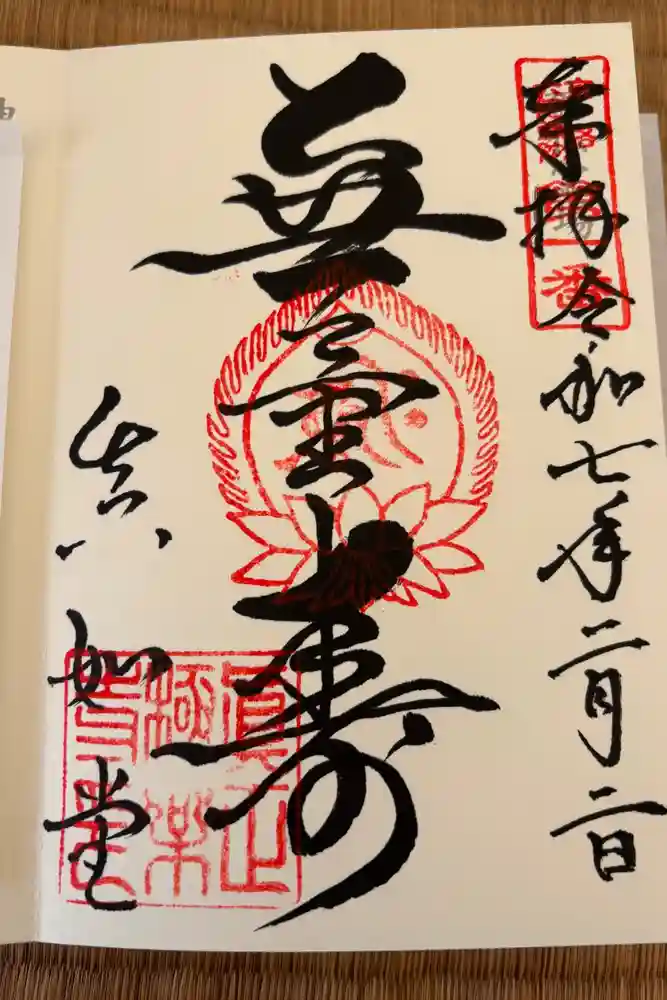 奉拝 令和七年二月二日
無量寿
真如堂
真正極楽寺